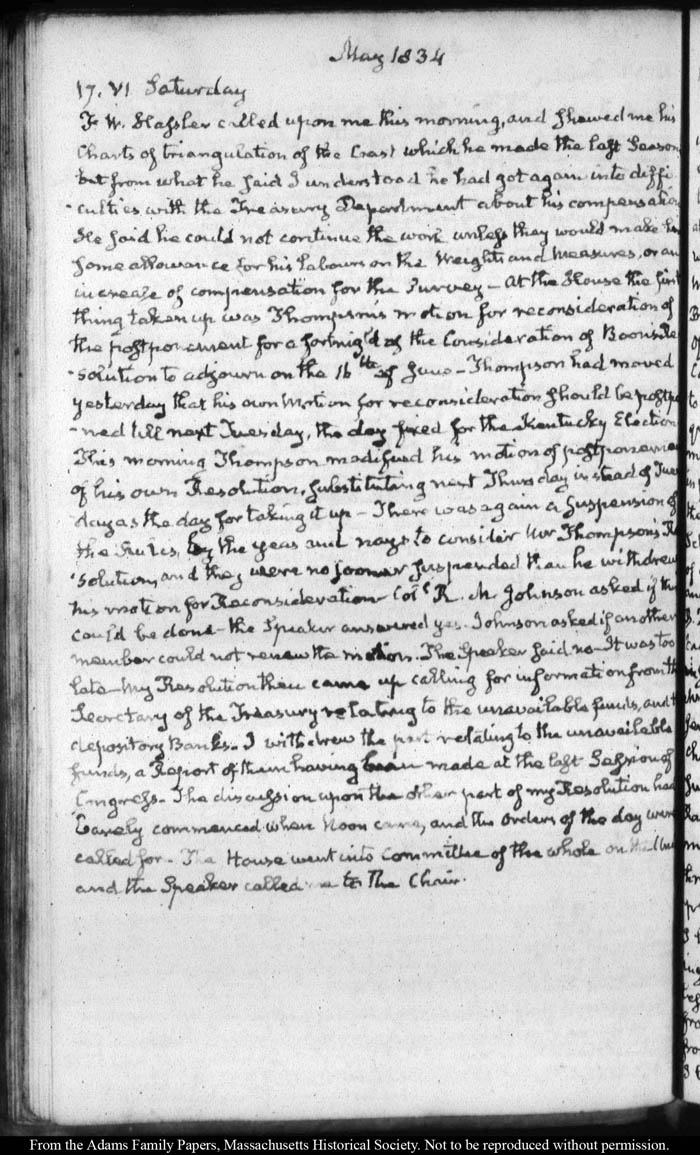 May 1834
17. VI. Saturday
F. W. Hassler called upon me this morning, and shewed me his
Charts of triangulation of the Coast which he made the last Season
but from what he said I understood he had got again into diffi-
-culties with the Treasury Department about his compensation
He said he could not continue the work unless they would make him
some allowance for his labours on the Weights and Measures, or an
increase of compensation for the Survey — At the House the first
thing taken up was Thompson's motion for reconsideration of
the postponement for a fortnight of the Consideration of Boon's Re-
-solution to adjourn on the 16th of June — Thompson had moved
yesterday that his own Motion for reconsideration should be postpo-
-ned till next Tuesday, the day fixed for the Kentucky Election
This morning Thompson modified his motion of postponement
of his own Resolution, substituting next Thursday instead of Tues-
day as the day for taking it up — There was again a suspension of
the Rules, by the yeas and nays to consider Mr Thompson's Re-
-solution, and they were no sooner suspended than he withdrew
his motion for Reconsideration. Coll. R. M. Johnson asked if this
could be done — the Speaker answered yes. Johnson asked if another
member could not renew the motion. The Speaker said no — It was too
late — My Resolution then came up calling for information from the
Secretary of the Treasury relating to the unavailable funds, and the
depository Banks. I withdrew the part relating to the unavailable
funds, a Report of them having been made at the last Session of
Congress — The discussion upon the other part of my Resolution had
barely commenced when Noon came, and the Orders of the day were
called for — The House went into Committee of the whole on the
and the Speaker called me to the Chair.
From the Adams Family Papers, Massachusetts Historical Society. Not to be reproduced without permission.